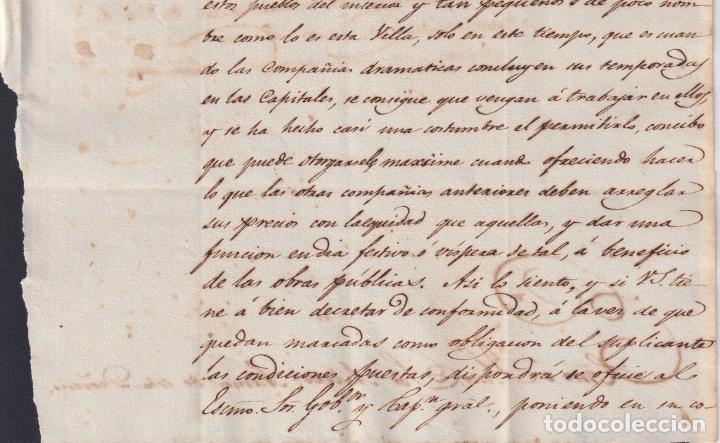 estos pueblos del interior y tan pequeños ó de poco nom-
bre como lo es esta Villa, solo en este tiempo, que es cuan-
do las Compañias dramaticas concluyen sus temporadas
en las Capitales, se consigue que vengan á trabajar en ellos,
y se ha hecho casi una costumbre el permitirlo, concibo
que puede otorgarsele maxsime cuando ofreciendo hacer
lo que las otras compañias anteriores deben arreglar
sus precios con la equidad que aquellas, y dar una
funcion en dia festivo ó vispera de tal, á beneficio
de las obras públicas. Asi lo siento, y si V.S. tie-
ne á bien decretar de conformidad, á la vez de que
quedan marcadas como obligacion del suplicante
las condiciones puestas, dispondrá se oficie al
Escmo. Sor. Gob.or y Cap.n gral., poniendo en su co-
todocoleccion